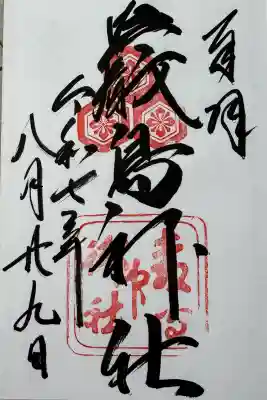 奉拝
厳島神社
令和七年
八月廿九日
嚴島
神社